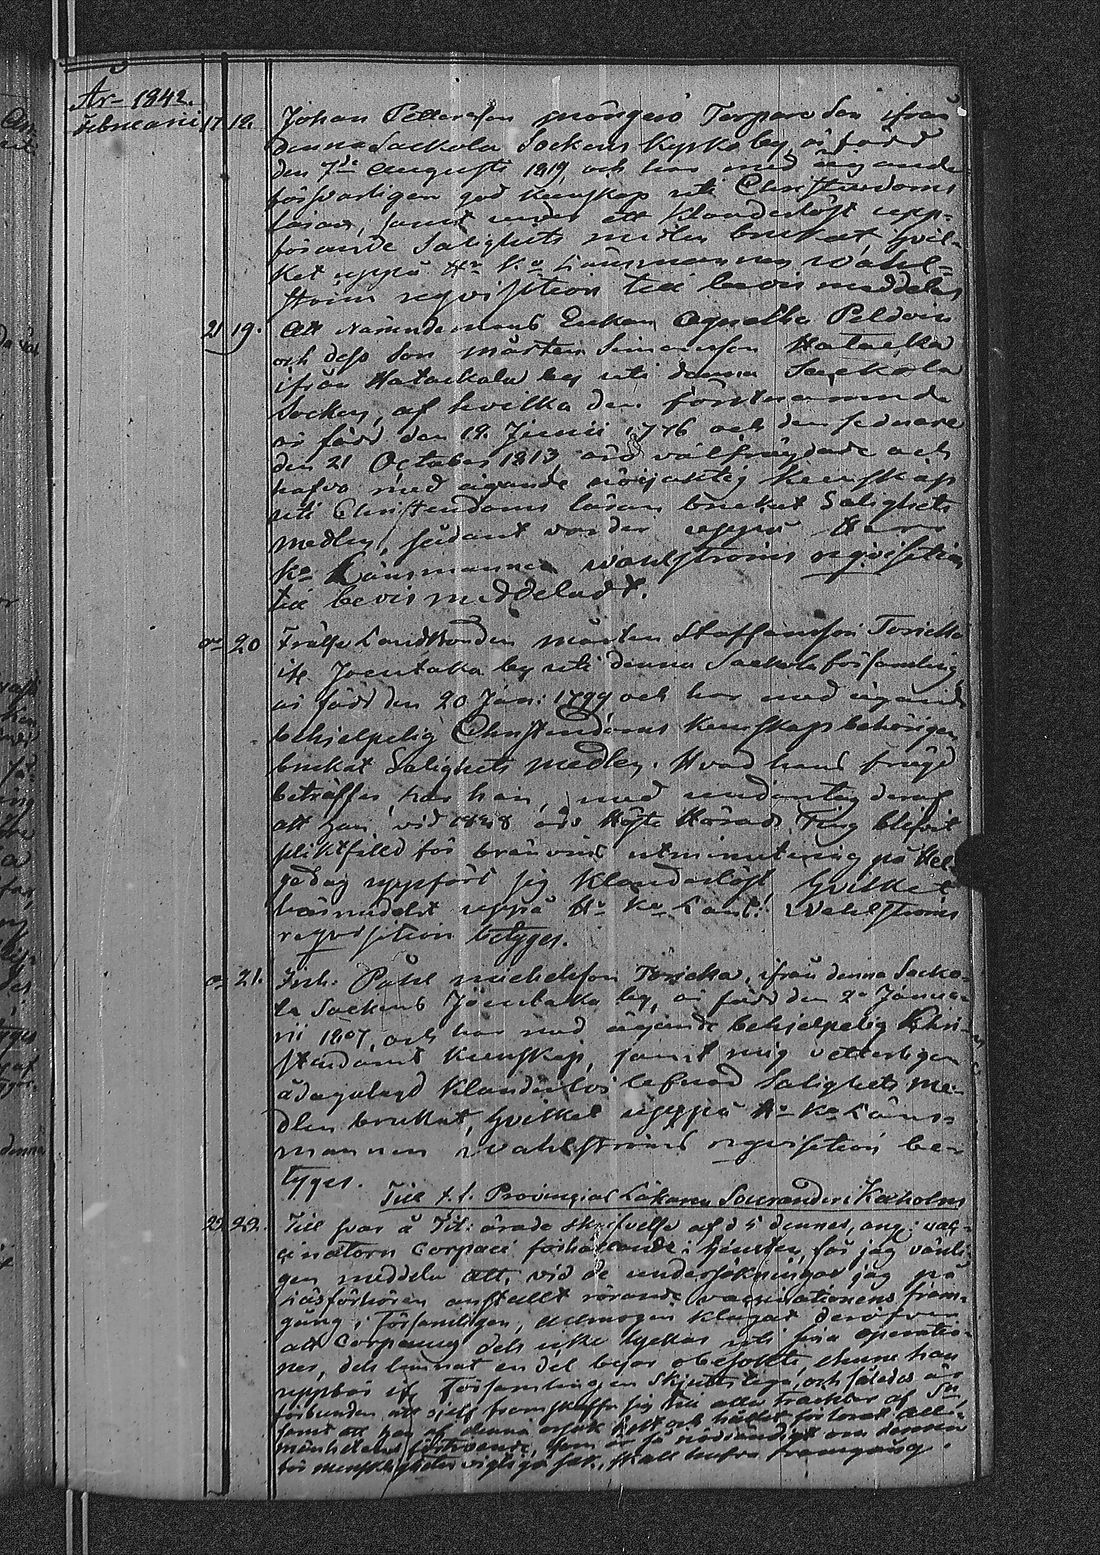 År 1842.
Februarii 17 18. Johan Pettersson Torpare Son ifrån
denna Sackola Sockens Kyrko by, är född
den 7de Augusti 1819, och har med ägande
försvarligen god kunskap uti Christendoms
läran, samt under ett klanderlöst upp-
förande Salighets medlen brukat, hvil-
ket uppå Hr Kr Länsmannen Wahl-
ströms reqvisition till bevis meddelas
21 19. Att Nämndemans Enkan Agnetha Peldoin
och dess Son Mårten Simonsson Hatacka
ifrån Hatackala by uti denna Sackola
Socken, af hvilka den förstnämnde
är född den 19. Junii 1776 och den sednare
den 21 October 1813 äro välfrägdade och
hafva med ägande nöjaktig kunskap
uti Christendoms läran brukat Salighets
medlen, sådant varder uppå Herr
Kr Länsmannen Wahlströms reqvisition
till bevis meddeladt.
20 Frälse Landbonden Mårten Staffansson Toricka
ifr Joentaka by uti denna Sackola församling
är född den 20 Jan: 1799 och har med ägande
behjelpelig Christendoms kunskap behörigen
brukat Salighets medlen. Hvad hans frägd
beträffar, har han, med undantag deraf
att han, vid Höste Härads Ting blifvit
pliktfälld för bränvins utminutering på Hel-
gedag uppfört sig klanderlöst, hvilket
härmedelst uppå Hr Kr Läns: Wahlströms
reqvisition betyges.
21. Påhl Michelsson Toricka, ifrån denna Sacko-
la Sockens Joentaka by, är född den 2 Janua-
rii 1807, och har med ägande behjelpelig Chri-
stendoms kunskap, samt mig vetterligen
ådagalagd klanderlös lefnad Salighets me-
dlen brukat, hvilket uppå Hr Kr Läns-
mannen Wahlströms reqvisition be-
tyges.
Till t. f. Provincial Läkaren i Kexholm
22. 22. Till svar å Tit: ärade skrifvelse af d 5 dennes, ang: vac-
cinatorn förhållande i tjensten, får jag vänli-
gen meddela att, vid de undersökningar jag på
läsförhören anstallt rörande vaccinationens fram-
gång i Församlingen, allmogen klagat deröfver
att dels icke lyckas uti sina operatio-
ner, dels lämnat en del byar obesökte ehuru han
uppbär ifr Församlingen Skjutslega, och således är
förbunden att sjelf framskaffa sig till alla trakter af Sn,
samt att han af denna orsak helt och hållet förlorat allm-
mänhetens förtroende, som är så nödvändigt om denna
för menskligheten vigtiga sak, skall hafva framgång.